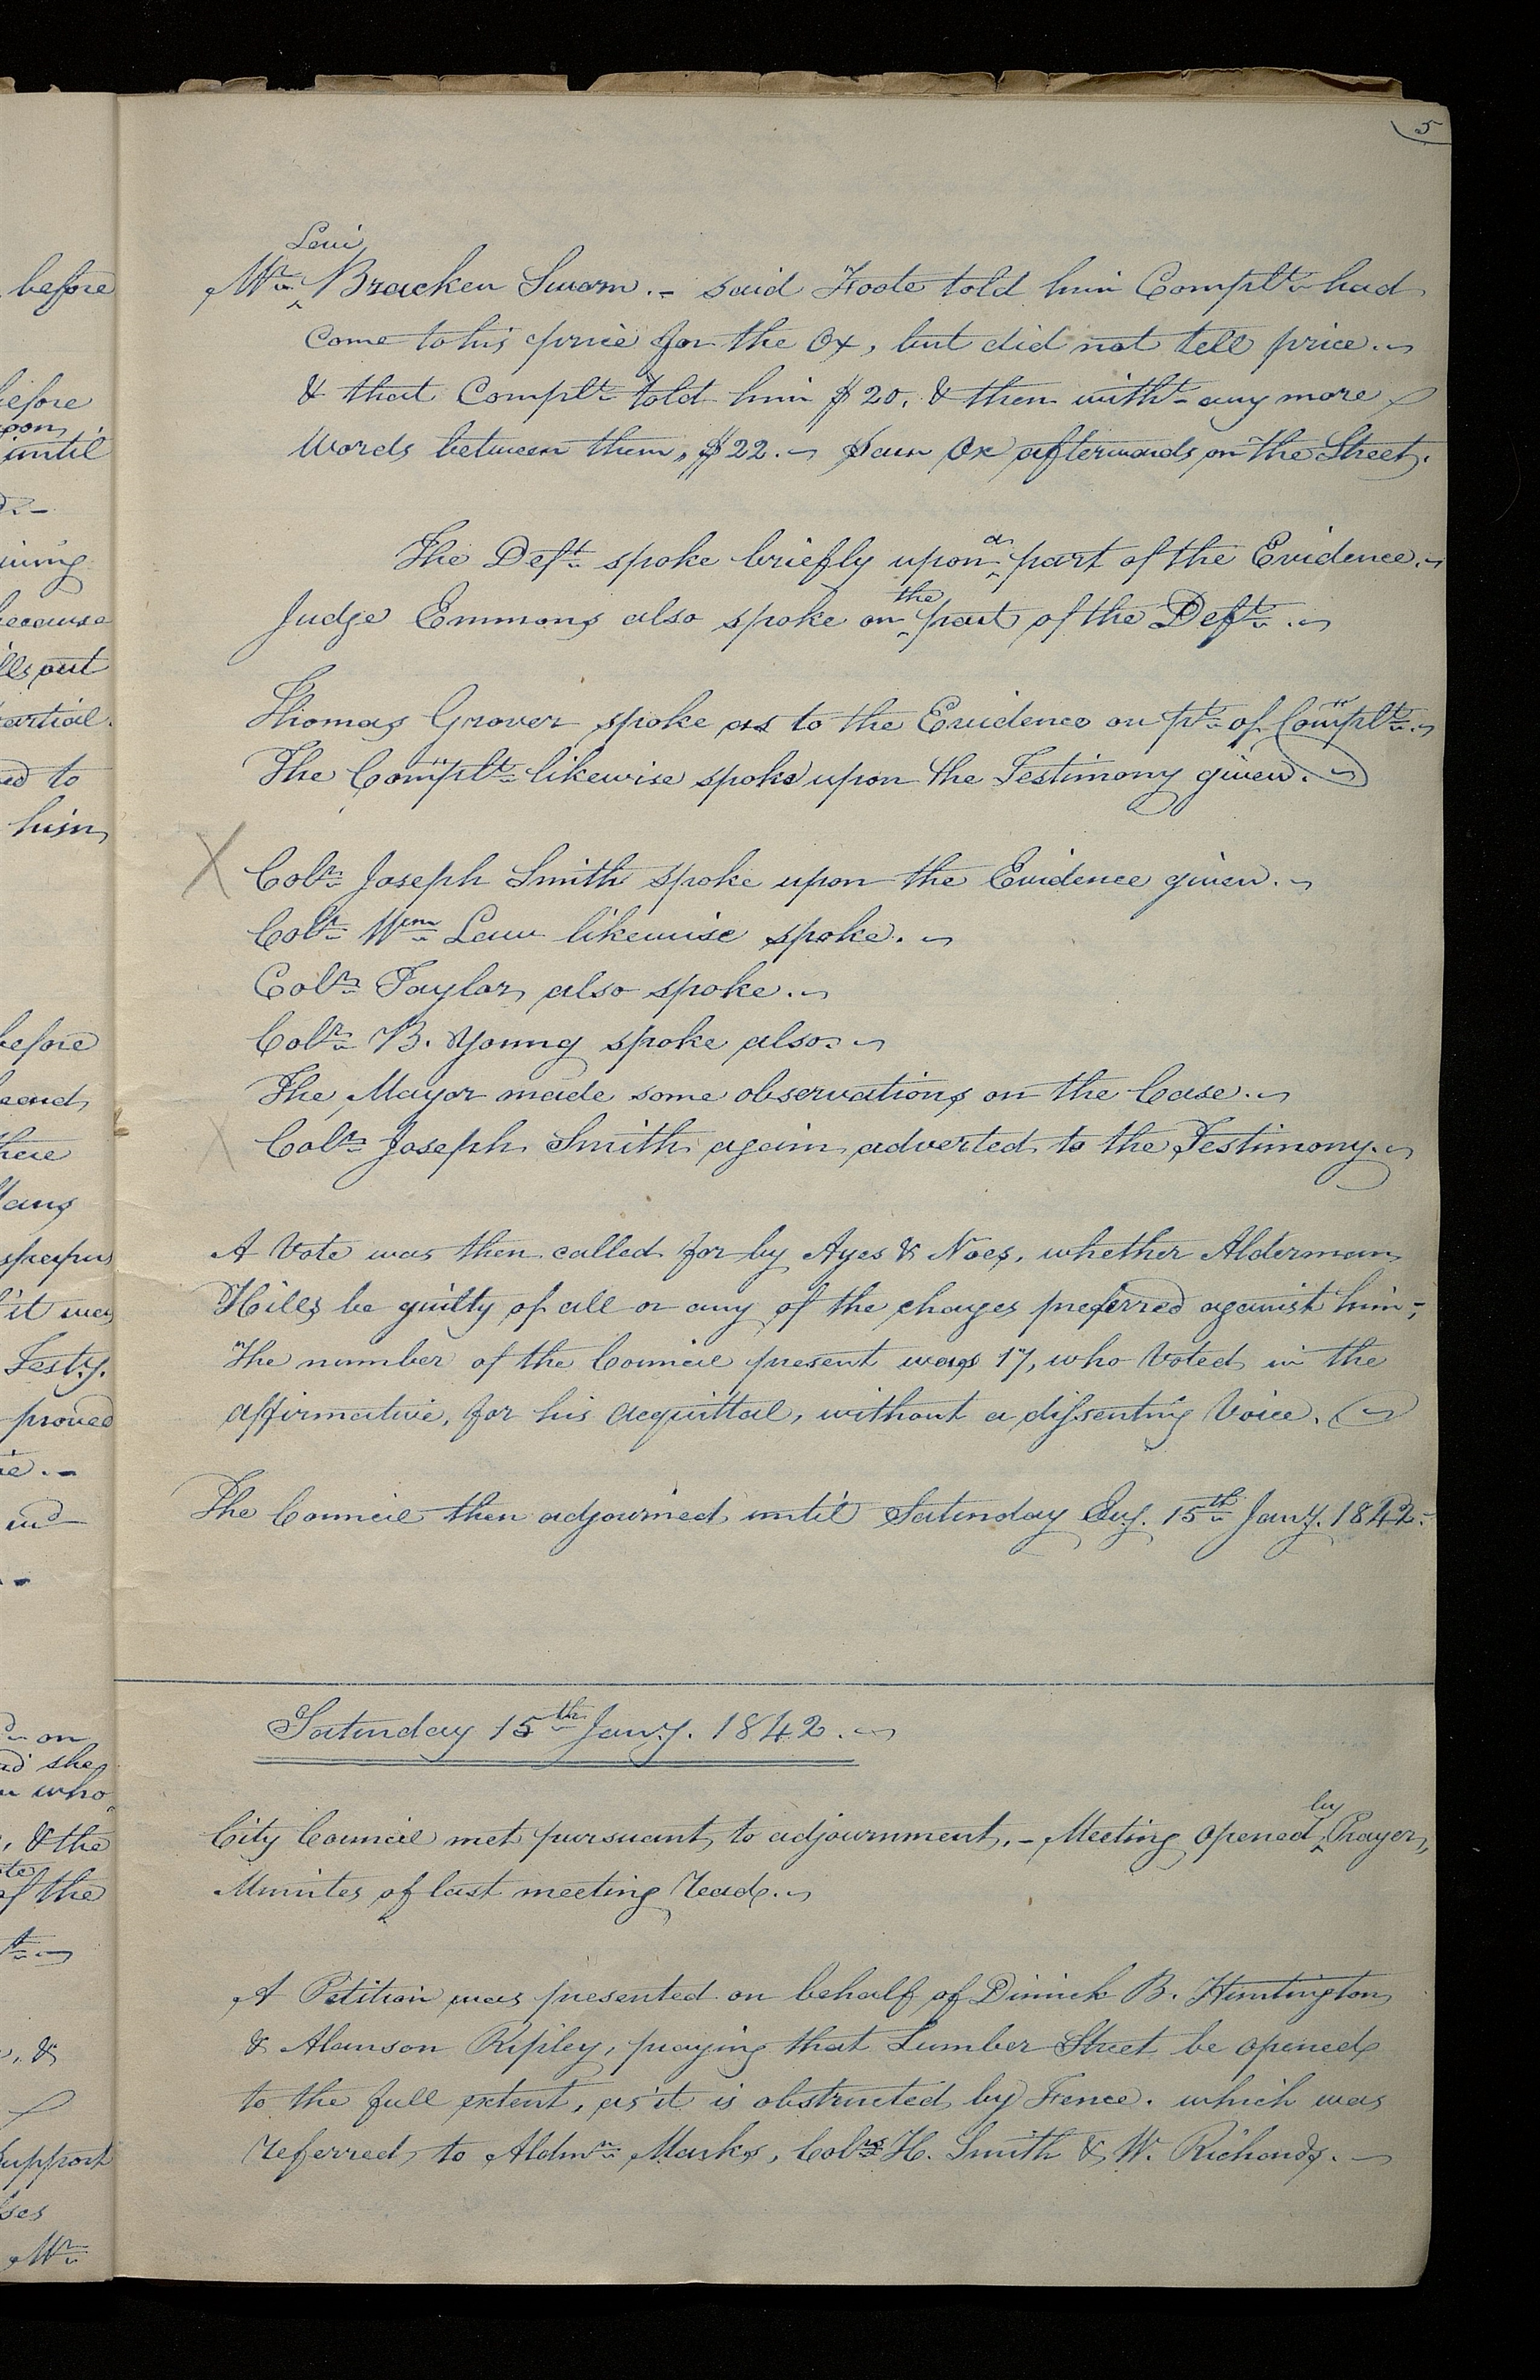 5
Levi
Mr. ^ Bracken Sworn.- said Foote told him Complt. had
come to his price for the Ox, but did not tell price.~
& that Complt. told him $20, & then witht. any more
Words between them, $22.~ Saw Ox afterwards on the Street.
a
The Deft. spoke briefly upon ^ part of the Evidence.~
the
Judge Emmons also spoke on ^ part of the Deft.~
Thomas Grover spoke as to the Evidence on pt. of Complt.~
The Complt. likewise spoke upon the Testimony given.~
X Colr. Joseph Smith spoke upon the Evidence given.~
Colr. Wm. Law likewise spoke.~
Colr. Taylor also spoke.~
Colr. B. Young spoke also.~
The Mayor made some observations on the Case.~
Colr. Joseph Smith again adverted to the Testimony.~
A Vote was then called for by Ayes & Noes, whether Alderman
Hills be guilty of all or any of the charges preferred against him-;
The number of the Council present was 17, who Voted in the
affirmative, for his acquittal, without a dissenting Voice.~
The Council then adjourned until Saturday 15th Jany. 1842.-
Saturday 15th Jany. 1842.~
by
City Council met pursuant to adjournment,- Meeting opened ^ Prayer,
Minutes of last meeting read.~
A Petition was presented on behalf of Dimick B. Huntington
& Alanson Ripley, praying that Lumber Street be opened
to the full extent, as it is obstructed by Fence. which was
referred to Aldmn. Marks, Colrs. H. Smith & W. Richards.~
before
before
until
because
out
to
him
before
there
it was
Testy.
proved
on
she
who
& the
of the
&
support
Mr.